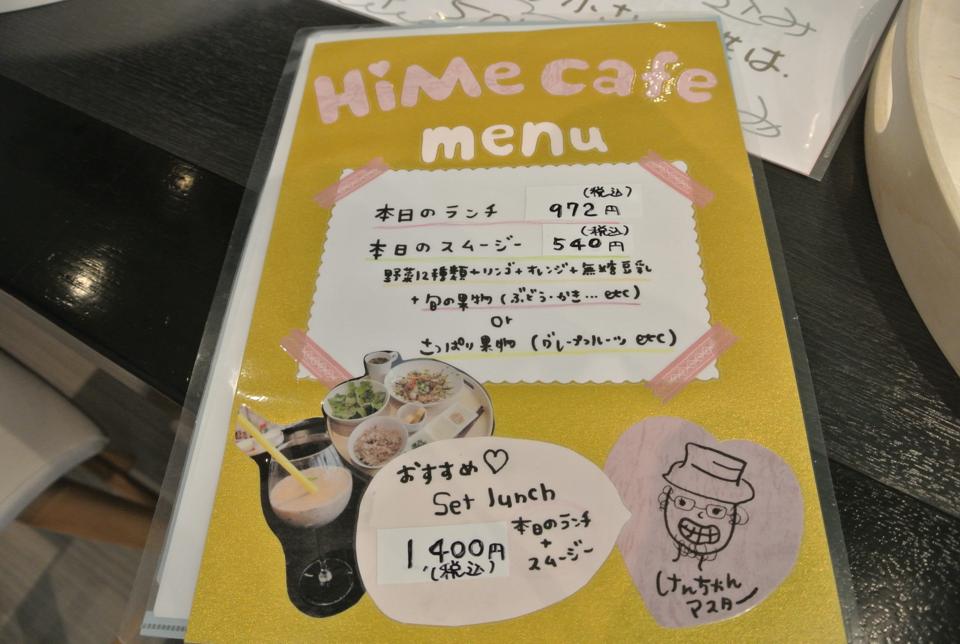 HiMe cafe
menu
本日のランチ 972円 (税込)
本日のスムージー 540円 (税込)
野菜12種類+リンゴ+オレンジ+無糖豆乳
+旬の果物(ぶどう・かき...etc)
or
さっぱり果物(グレープフルーツ etc)
おすすめ♡
Set lunch
1,400円
(税込)
本日のランチ
+
スムージー
けんちゃん
マスター
は.